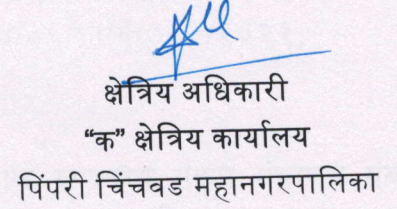 क्षेत्रिय अधिकारी
“क” क्षेत्रिय कार्यालय
पिंपरी चिंचवड महानगरपालिका